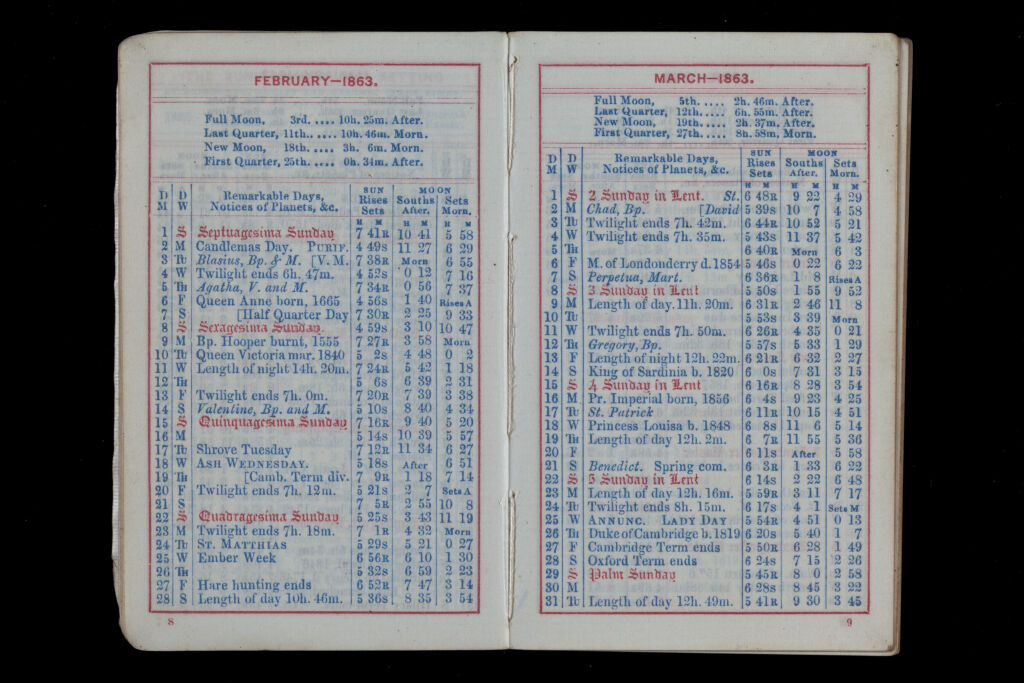 FEBRUARY—1863.
Full Moon, 3rd. .... 10h. 25m. After.
Last Quarter, 11th. .... 10h. 46m. Morn.
New Moon, 18th. .... 3h. 6m. Morn.
First Quarter, 25th. .... 0h. 34m. After.
D M D W Remarkable Days, Notices of Planets, &c. SUN Rises Sets MOON Souths After. Sets Morn.
H M H M H M
1 S Septuagesima Sunday 7 41R 10 41 5 58
2 M Candlemas Day. PURIF. 4 49s 11 27 6 29
3 TU Blasius, Bp. & M. [V.M. 7 38R Morn 6 55
4 W Twilight ends 6h. 47m. 4 52s 0 12 7 16
5 TH Agatha, V. and M. 7 34R 0 56 7 37
6 F Queen Anne born, 1665 4 56s 1 40 Rises A
7 S [Half Quarter Day 7 30R 2 25 9 33
8 S Sexagesima Sunday. 4 59s 3 10 10 47
9 M Bp. Hooper burnt, 1555 7 27R 3 58 Morn
10 TU Queen Victoria mar. 1840 5 2s 4 48 0 2
11 W Length of night 14h. 20m. 7 24R 5 42 1 18
12 TH 5 6s 6 39 2 31
13 F Twilight ends 7h. 0m. 7 20R 7 39 3 38
14 S Valentine, Bp. and M. 5 10s 8 40 4 34
15 S Quinquagesima Sunday 7 16R 9 40 5 20
16 M 5 14s 10 39 5 57
17 TU Shrove Tuesday 7 12R 11 34 6 27
18 W ASH WEDNESDAY. 5 18s After 6 51
19 TH [Camb. Term div. 7 9R 1 18 7 14
20 F Twilight ends 7h. 12m. 5 21s 2 7 Sets A
21 S 7 5R 2 55 10 8
22 S Quadragesima Sunday 5 25s 3 43 11 19
23 M Twilight ends 7h. 18m. 7 1R 4 32 Morn
24 TU ST. MATTHIAS 5 29s 5 21 0 27
25 W Ember Week 6 56R 6 10 1 30
26 TH 5 32s 6 59 2 23
27 F Hare hunting ends 6 52R 7 47 3 14
28 S Length of day 10h. 46m. 5 36s 8 35 3 54
8
MARCH—1863.
Full Moon, 5th. .... 2h. 46m. After.
Last Quarter, 12th. .... 6h. 55m. After.
New Moon, 19th. .... 2h. 37m. After.
First Quarter, 27th. .... 8h. 58m. Morn.
D M D W Remarkable Days, Notices of Planets, &c. SUN Rises Sets MOON Souths After. Sets Morn.
H M H M H M
1 S 2 Sunday in Lent. St. 6 48R 9 22 4 29
2 M Chad, Bp. [David 5 39s 10 7 4 58
3 TU Twilight ends 7h. 42m. 6 44R 10 52 5 21
4 W Twilight ends 7h. 35m. 5 43s 11 37 5 42
5 TH 6 40R Morn 6 3
6 F M. of Londonderry d. 1854 5 46s 0 22 6 22
7 S Perpetua, Mart. 6 36R 1 8 Rises A
8 S 3 Sunday in Lent 5 50s 1 55 9 52
9 M Length of day. 11h. 20m. 6 31R 2 46 11 8
10 TU 5 53s 3 39 Morn
11 W Twilight ends 7h. 50m. 6 26R 4 35 0 21
12 TH Gregory, Bp. 5 57s 5 33 1 29
13 F Length of night 12h. 22m. 6 21R 6 32 2 27
14 S King of Sardinia b. 1820 6 0s 7 31 3 15
15 S 4 Sunday in Lent 6 16R 8 28 3 54
16 M Pr. Imperial born, 1856 6 4s 9 23 4 25
17 TU St. Patrick 6 11R 10 15 4 51
18 W Princess Louisa b. 1848 6 8s 11 6 5 14
19 TH Length of day 12h. 2m. 6 7R 11 55 5 36
20 F 6 11s After 5 58
21 S Benedict. Spring com. 6 3R 1 33 6 22
22 S 5 Sunday in Lent 6 14s 2 22 6 48
23 M Length of day 12h. 16m. 5 59R 3 11 7 17
24 TU Twilight ends 8h. 15m. 6 17s 4 1 Sets M
25 W ANNUNC. LADY DAY 5 54R 4 51 0 13
26 TH Duke of Cambridge b. 1819 6 20s 5 40 1 7
27 F Cambridge Term ends 5 50R 6 28 1 49
28 S Oxford Term ends 6 24s 7 15 2 26
29 S Palm Sunday 5 45R 8 0 2 58
30 M 6 28s 8 45 3 22
31 TU Length of day 12h. 49m. 5 41R 9 30 3 45
9